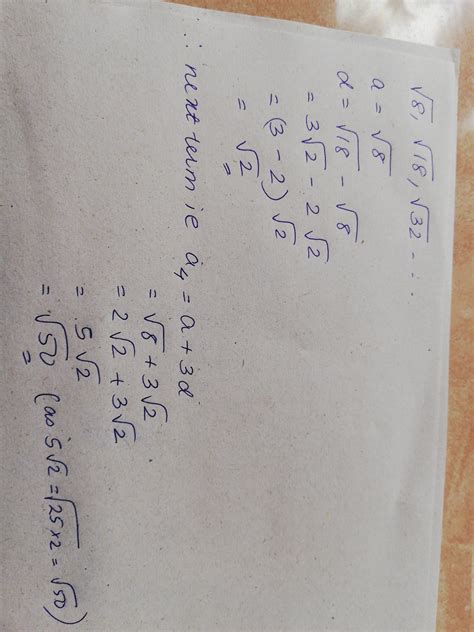 √8, √18, √32 - ..
a = √8
d = √18 - √8
= 3√2 - 2√2
= (3 - 2) √2
= √2
∴ next term ie a₄ = a + 3d
= √8 + 3√2
= 2√2 + 3√2
= 5√2
= √50 (as 5√2 = √25×2 = √50)